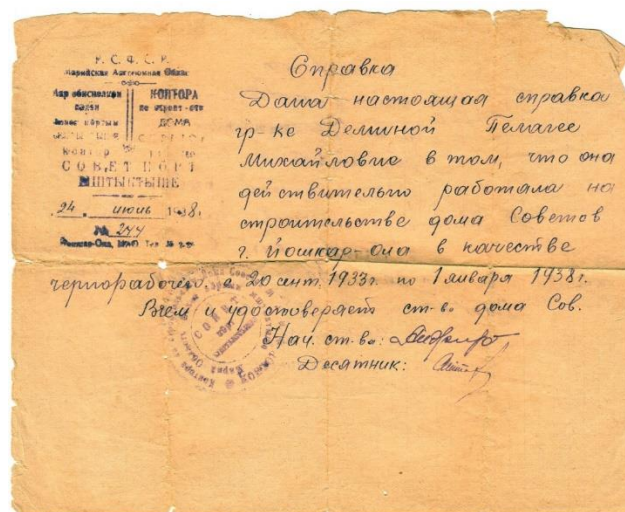 Р. С. Ф. С. Р.
Марийская Автономная Област
КОНТОРА
по строит-ству
ДОМА
СОВЕТ ПӦРТ
ЫШТЫМЫШТЕ
24. июнь 1938.
№ 244
Йошкар-Ола, МАО
Справка
Дана настоящая справка
гр-ке Деминой Пелагее
Михайловне в том, что она
действительно работала на
строительстве дома Советов
г. Йошкар-ола в качестве
чернорабочей, с 20 сент. 1933г. по 1 января 1938г.
В чем и удостоверяет ст-во дома Сов.
Нач. ст-ва:
Десятник: